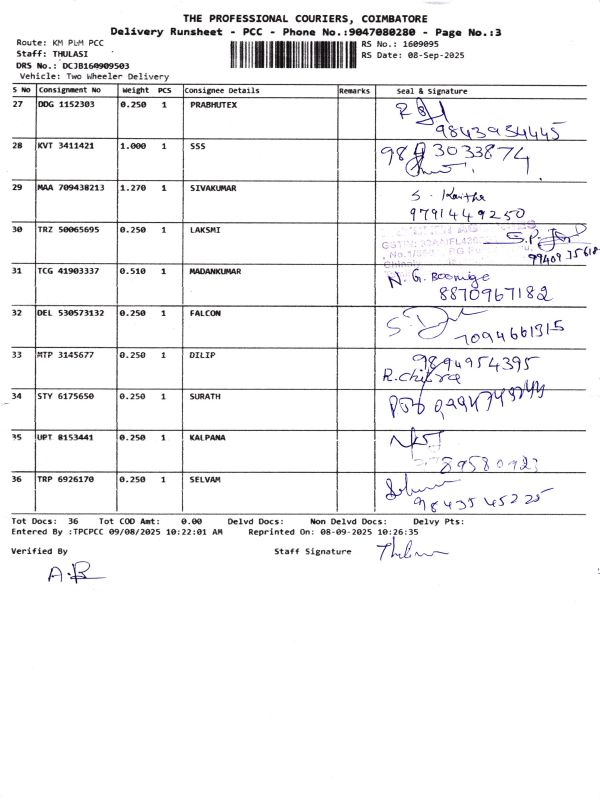 THE PROFESSIONAL COURIERS, COIMBATORE
Delivery Runsheet - PCC - Phone No.:9047080280 - Page No.:3
Route: KM PLM PCC
Staff: THULASI
DRS No.: DCJB160909503
Vehicle: Two Wheeler Delivery
RS No.: 1609095
RS Date: 08-Sep-2025
S No Consignment No Weight PCS Consignee Details Remarks Seal & Signature
27 DDG 1152303 0.250 1 PRABHUTEX
9843954445
28 KVT 3411421 1.000 1 SSS 9843033874
29 MAA 709438213 1.270 1 SIVAKUMAR S. Kavitha
9791449250
30 TRZ 50065695 0.250 1 LAKSMI
31 TCG 41903337 0.510 1 MADANKUMAR N. G. Boomige
8870967182
32 DEL 530573132 0.250 1 FALCON
7094661315
33 MTP 3145677 0.250 1 DILIP 9894954395
R.Chitra
34 STY 6175650 0.250 1 SURATH
35 UPT 8153441 0.250 1 KALPANA
36 TRP 6926170 0.250 1 SELVAM
9843545225
Tot Docs: 36 Tot COD Amt: 0.00 Delvd Docs: Non Delvd Docs: Delvy Pts:
Entered By :TPCPCC 09/08/2025 10:22:01 AM Reprinted On: 08-09-2025 10:26:35
Verified By Staff Signature
A.B